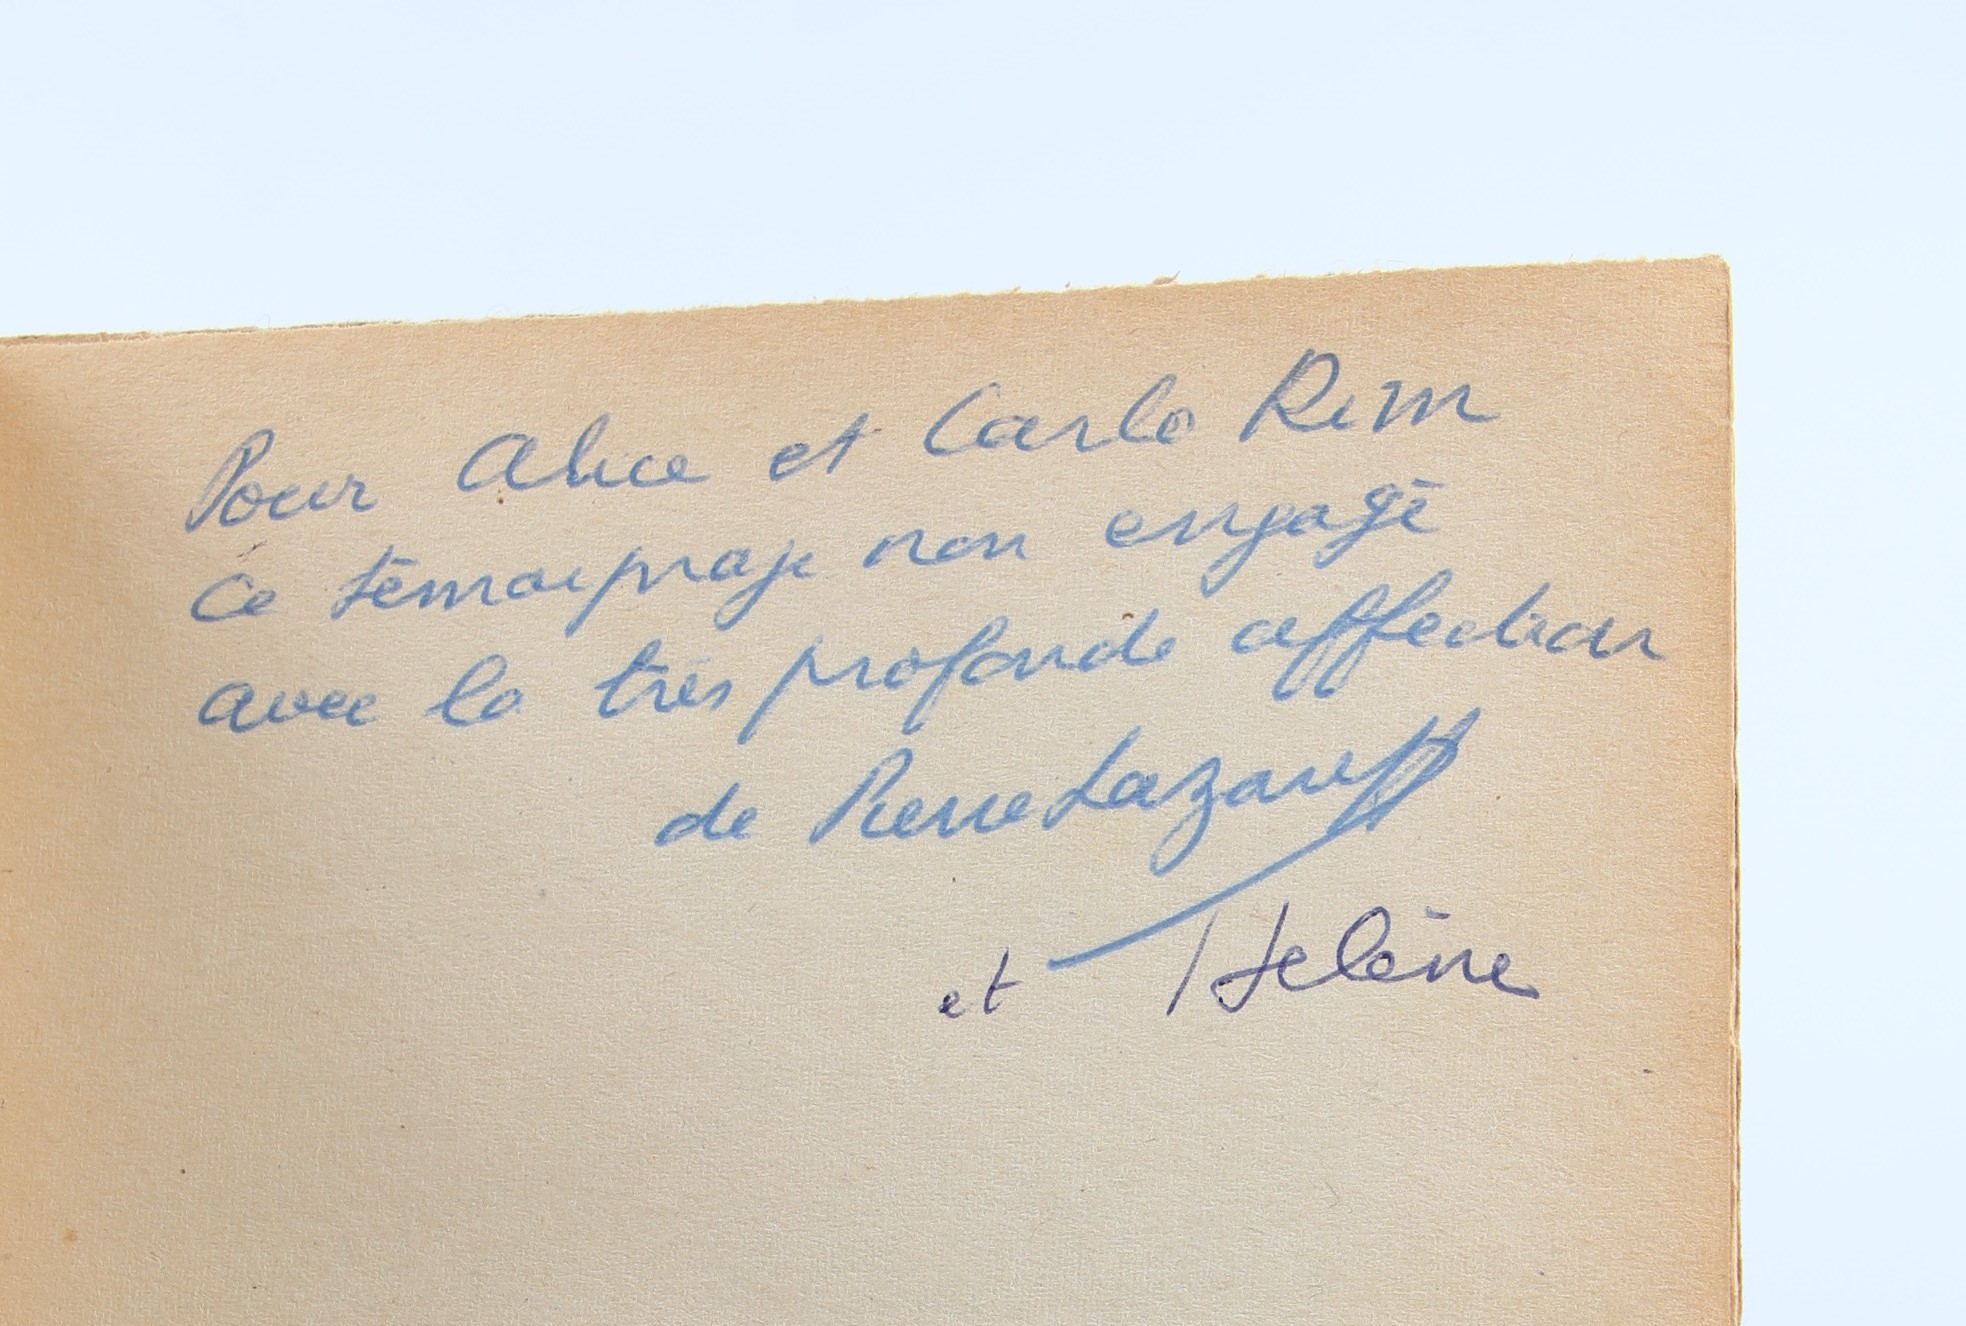 Pour Alice et Carlo Rim
ce témoignage non engagé
avec la très profonde affection
de Pierre Lazareff
et Hélène